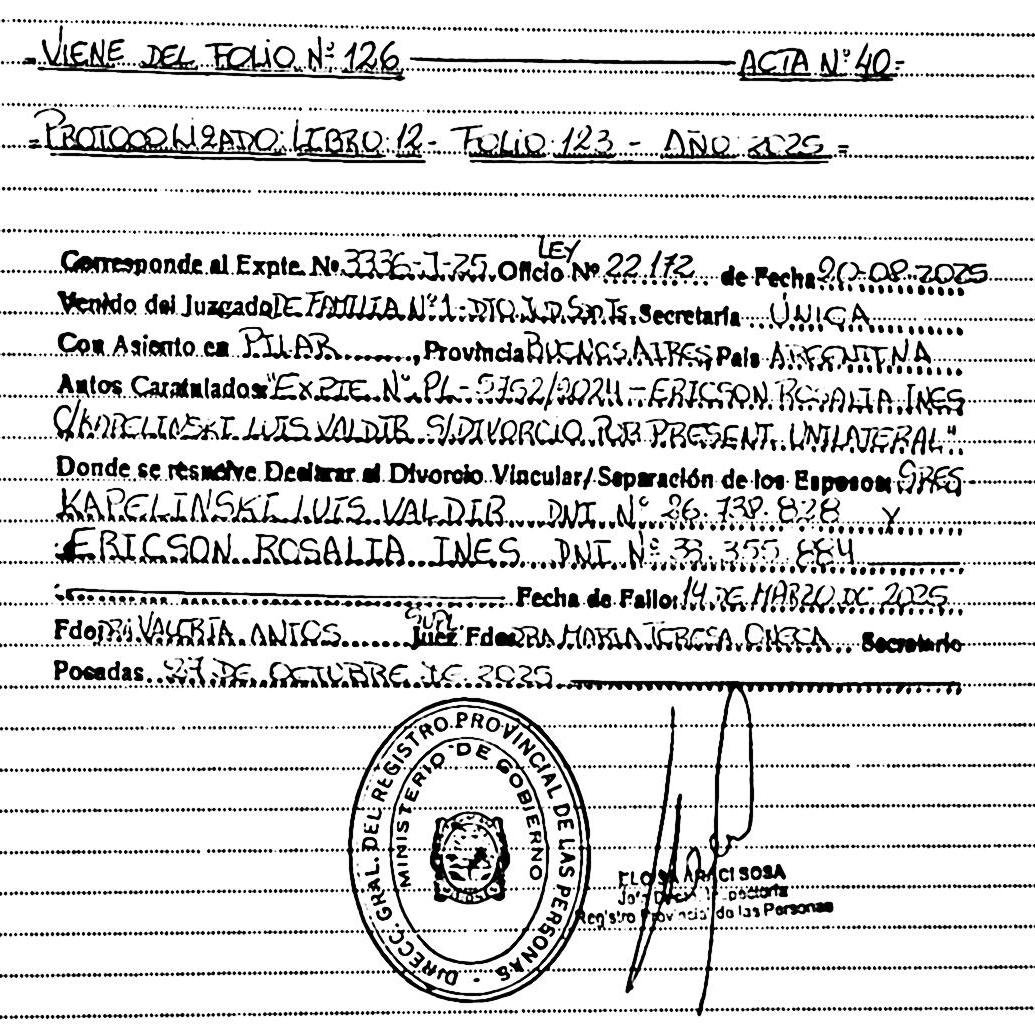 =VIENE DEL FOLIO Nº 126 ACTA Nº 40=
=PROTOCOLIZADO: LIBRO 12 - FOLIO 123 - AÑO 2025=
LEY
Corresponde al Expte. Nº 3336-J-25 Oficio Nº 22172 de Fecha 20-08-2025
Venido del Juzgado DE FAMILIA Nº 1 - DTO. Secretaria ÚNICA
Con Asiento en PILAR, Provincia BUENOS AIRES, Pais ARGENTINA
Autos Caratulados: "EXPTE Nº PL-5752/2024 - ERICSON ROSALIA INES
C/KAPELINSKI LUIS VALDIR S/DIVORCIO POR PRESENT. UNILATERAL"
Donde se resuelve Declarar el Divorcio Vincular/ Separación de los Esposos: SRES-
KAPELINSKI LUIS VALDIR DNI Nº 26.738.828 Y
ERICSON ROSALIA INES DNI Nº 33.355.884
Fecha de Fallo: 14 DE MARZO DE 2025
SUPL.
Fdo: DRA. VALERIA ANTOS Juez Fdo: DRA MARIA TERESA Secretario
Posadas 27 DE OCTUBRE DE 2025
DIRECC. GRAL. DEL REGISTRO PROVINCIAL DE LAS PERSONAS -
MINISTERIO DE GOBIERNO
ARACI SOSA
Registro Provincial de las Personas